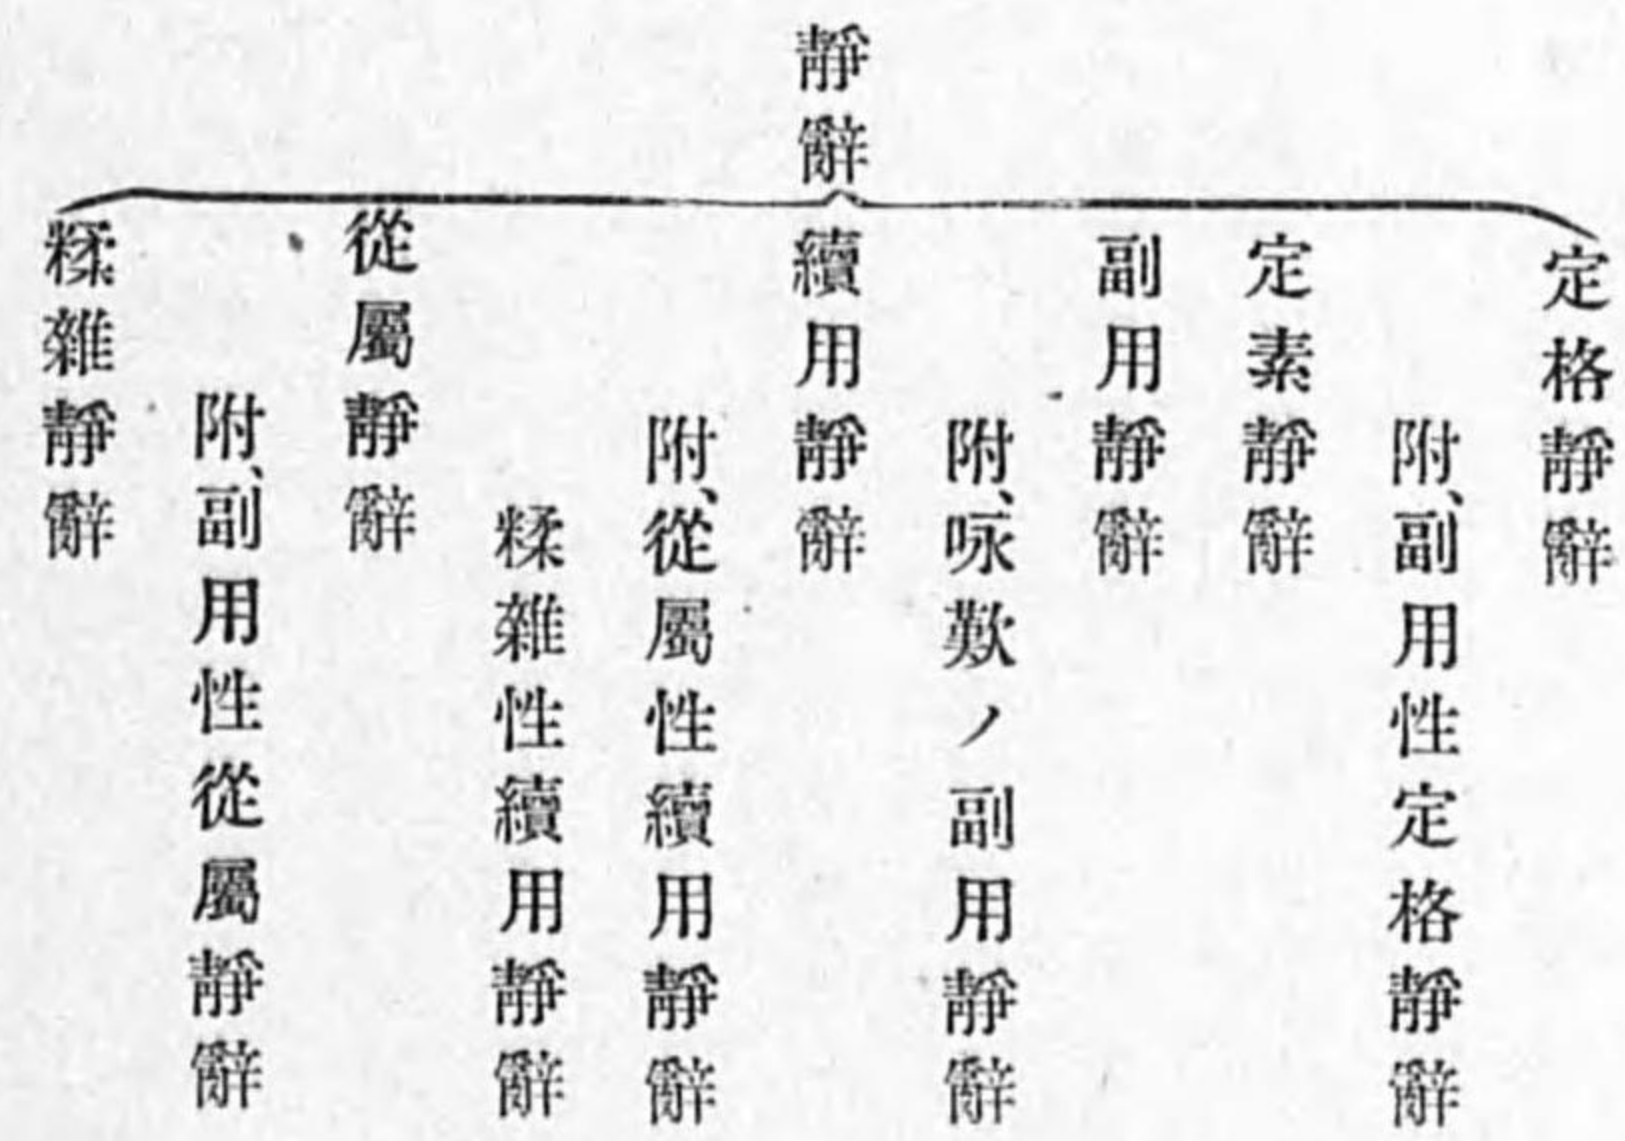 靜辭
定格靜辭
附、副用性定格靜辭
定素靜辭
副用靜辭
附、咏歎ノ副用靜辭
續用靜辭
附、從屬性續用靜辭
糅雜性續用靜辭
從屬靜辭
附、副用性從屬靜辭
糅雜靜辭